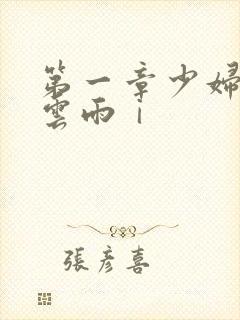 第一章少婦
雲雨｜
張彥喜